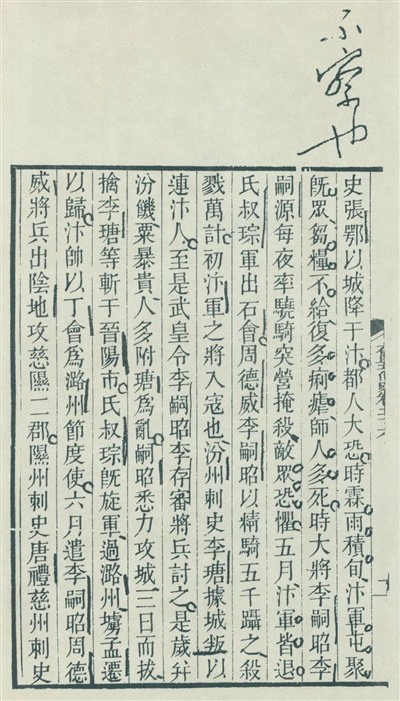 不察也
史張鄂以城降于汴都人大恐時霖雨積旬汴軍屯聚
既眾芻糧不給復多痢瘧師人多死時大將李嗣昭李
嗣源每夜率驍騎突營掩殺敵眾恐懼五月汴軍皆退
氏叔琮軍出石會周德威李嗣昭以精騎五千躡之殺
戮萬計初汴軍之將入寇也汾州刺史李瑭據城叛以
連汴人至是武皇令李嗣昭李存審將兵討之是歲并
汾饑粟暴貴人多附瑭為亂嗣昭悉力攻城三日而拔
擒李瑭等斬于晉陽市氏叔琮既旋軍過潞州擄孟遷
以歸汴帥以丁會為潞州節度使六月遣李嗣昭周德
威將兵出陰地攻慈隰二郡隰州刺史唐禮慈州刺史